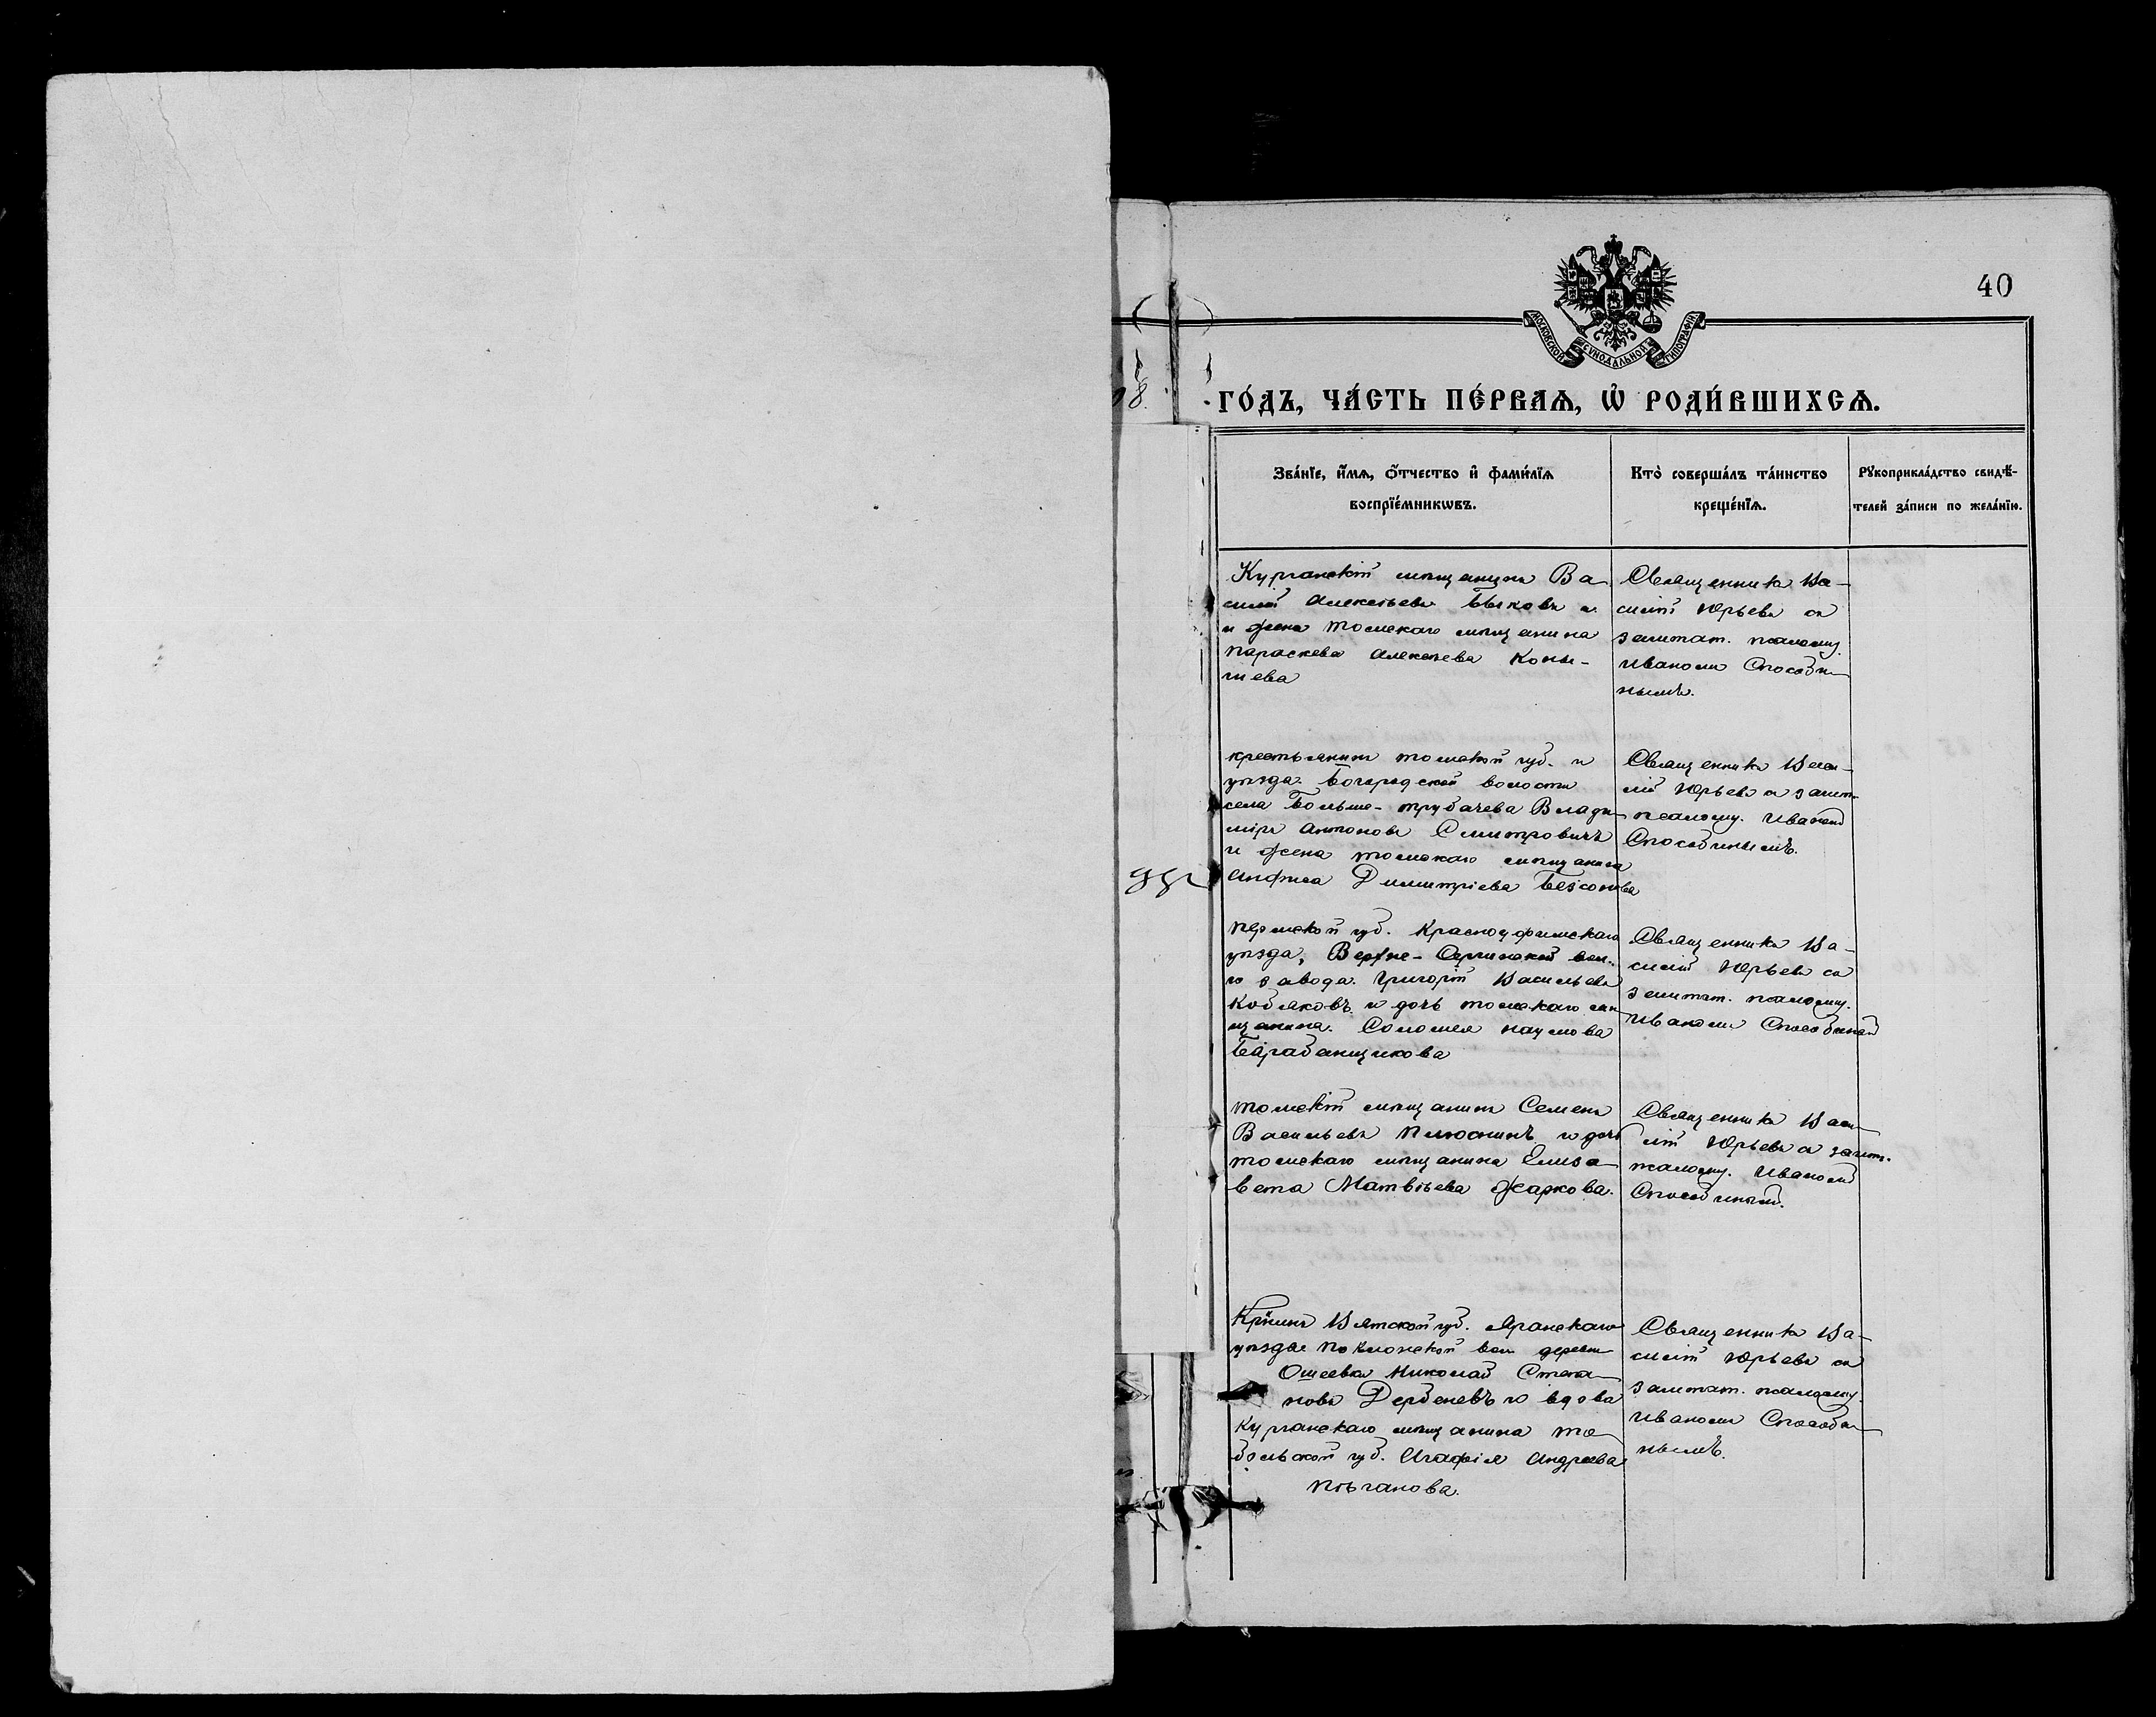 40
МОСКОВСКОЙ СѴНОДАЛЬНОЙ ТИПОГРАФІИ
8.
ГО́ДЪ, ЧА́СТЬ ПЕ́РВАѦ, Ѡ҆ РОДИ́ВШИХСѦ.
Зва́нїе, и҆́мѧ, ѻ҆́тчество и҆ фами́лїѧ
воспрїе́мникѡвъ.
Кто̀ соверша́лъ та́инство
креще́нїѧ.
Рꙋкоприкла́дство свидѣ́-
телей за́писи по жела́нїю.
Курганскій мѣщанинъ Ва
силій Алексѣевъ Быковъ и
и жена томскаго мѣщанина
Параскева Алексѣева Коны-
шева
Священникъ Ва-
силій Юрьевъ съ
заштат. псаломщ.
Иваномъ Способи
нымъ.
крестьянинъ томской губ. и
уѣзда Богородской волости
села Больше-трубачева Влади
міръ Антоновъ Смитровичъ
и жена томскаго мѣщанина
Анфиса Димитріева Безсонова
Священникъ Васи-
лій Юрьевъ съ зашт.
псаломщ. Иваномъ
Способинымъ.
Пермской губ. Красноуфимскаго
уѣзда, Верхне-Сергинской вол.
и завода Григорій Васильевъ
Кобяковъ и дочь томскаго мѣ
щанина Соломея Наумова
Барабанщикова
Священникъ Ва-
силій Юрьевъ съ
заштат. псаломщ.
Иваномъ Способиным
томскій мѣщанинъ Семенъ
Васильевъ Плюснинъ и дочь
томскаго мѣщанина Елиза
вета Матвѣева Жаркова.
Священникъ Васи
лій Юрьевъ съ зашт.
псаломщ. Иваномъ
Способиным.
Кр̃нинъ Вятской губ. Яранскаго
уѣзда вол деревни
Ошеевка Николай Степа
новъ Дербеневъ и вдова
Курганскаго мѣщанина То
больской губ. Агафія Андреева
Пѣганова.
Священникъ Ва-
силій Юрьевъ съ
заштат. псаломщ.
Иваномъ Способи
нымъ.